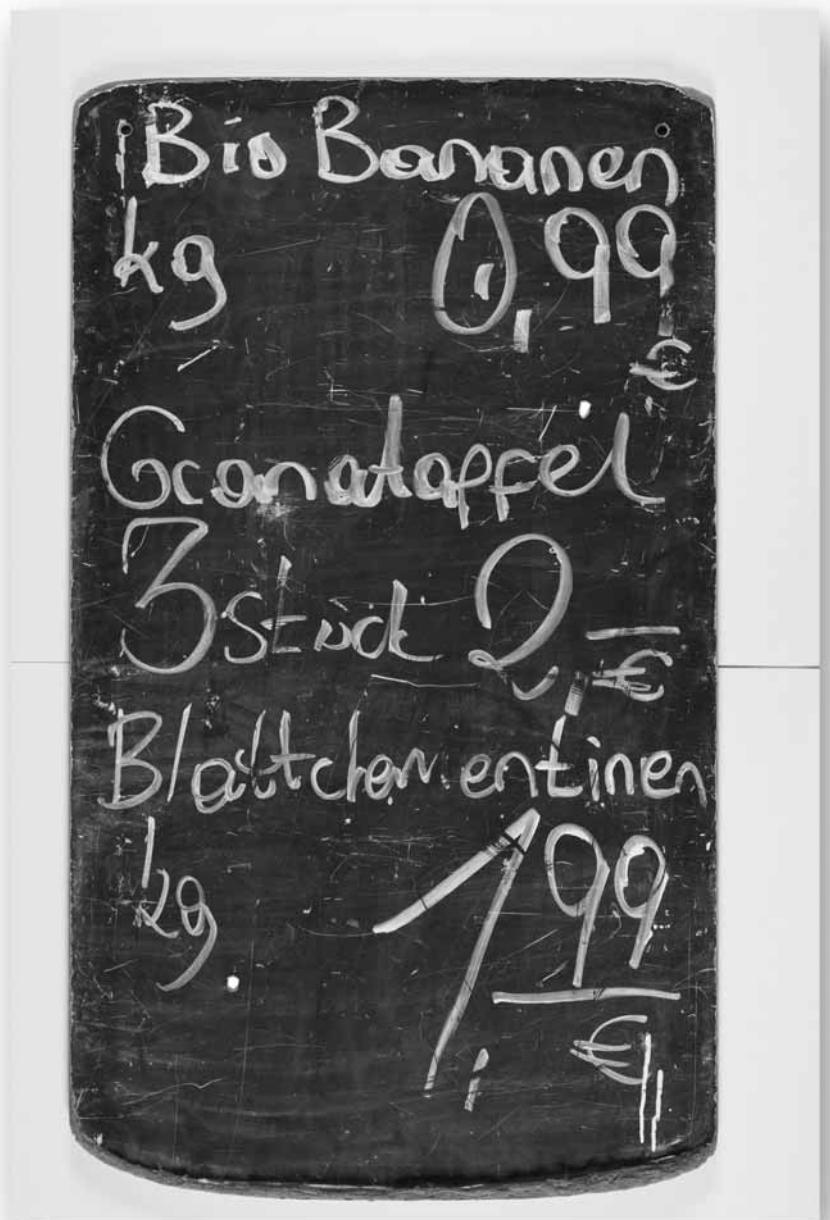 Bio Bananen
kg 0,99
€
Granatapfel
3 Stück 2,- €
Blättchem entinen
kg 1,99
€